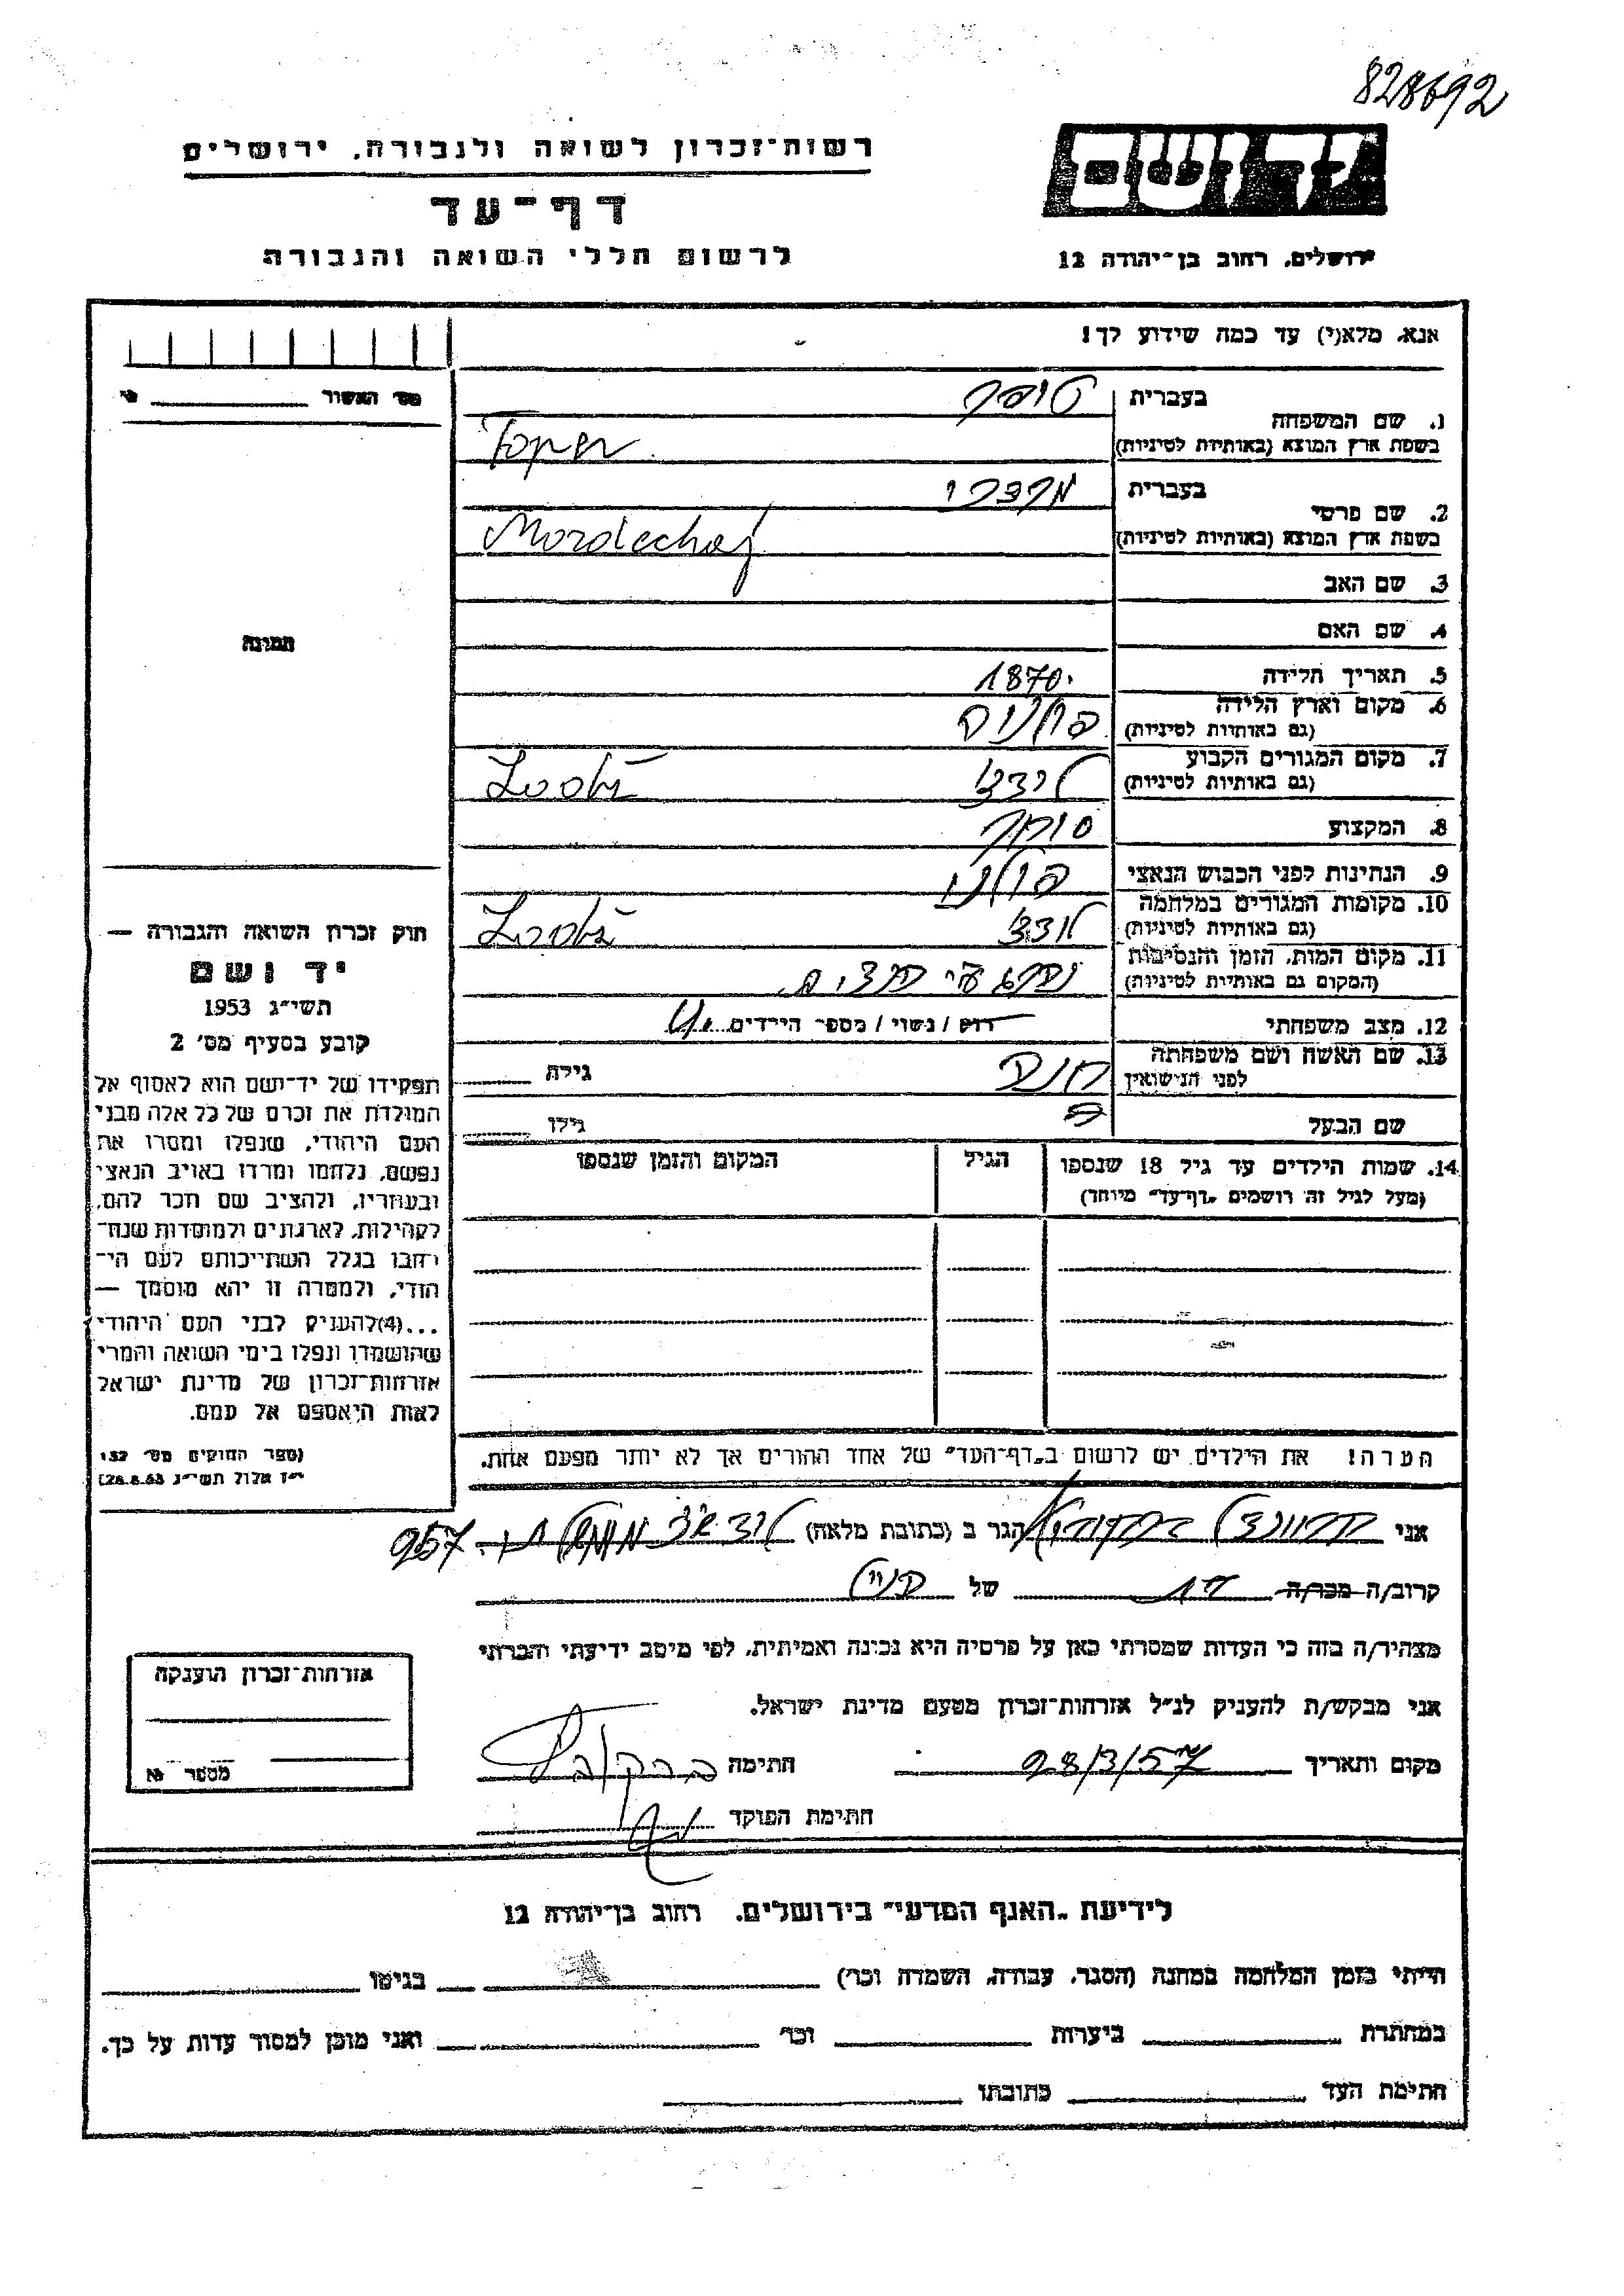 828692
יד ושם
רשות־זכרון לשואה ולגבורה, ירושלים
דף־עד
לרשום חללי השואה והגבורה
ירושלים, רחוב בן־יהודה 12
אנא, מלא(י) עד כמה שידוע לך!
מס׳ האשור
1. שם המשפחה
בעברית טופר
בשפת ארץ המוצא (באותיות לטיניות) Toper
2. שם פרטי
בעברית מרדכי
בשפת ארץ המוצא (באותיות לטיניות) Mordechaj
3. שם האב
4. שם האם
תמונה
5. תאריך הלידה 1870
6. מקום וארץ הלידה פולניה
(גם באותיות לטיניות)
7. מקום המגורים הקבוע לודז Lodź
(גם באותיות לטיניות)
8. המקצוע סוחר
9. הנתינות לפני הכבוש הנאצי פולני
10. מקומות המגורים במלחמה לודז Lodź
(גם באותיות לטיניות)
11. מקום המות, הזמן והנסיבות
(המקום גם באותיות לטיניות)
12. מצב משפחתי רווק / נשוי / מספר הילדים
13. שם האשה ושם משפחתה חנה גילה
לפני הנישואין
שם הבעל גילו
14. שמות הילדים עד גיל 18 שנספו הגיל המקום והזמן שנספו
(מעל לגיל זה רושמים „דף־עד״ מיוחד)
הערה! את הילדים יש לרשום ב„דף־העד״ של אחד ההורים אך לא יותר מפעם אחת.
חוק זכרון השואה והגבורה —
יד ושם
תשי״ג 1953
קובע בסעיף מס׳ 2
תפקידו של יד־ושם הוא לאסוף אל
המולדת את זכרם של כל אלה מבני
העם היהודי, שנפלו ומסרו את
נפשם, נלחמו ומרדו באויב הנאצי
ובעוזריו, ולהציב שם וזכר להם,
לקהילות, לארגונים ולמוסדות שנח־
רבו בגלל השתייכותם לעם הי־
הודי, ולמטרה זו יהא מוסמך —
...(4)להעניק לבני העם היהודי
שהושמדו ונפלו בימי השואה והמרי
אזרחות־זכרון של מדינת ישראל
לאות היאספם אל עמם.
(ספר החוקים מס׳ 132
י״ז אלול תשי״ג 28.8.53)
אני הגר ב (כתובת מלאה) 957
קרוב/ה מכר/ה של
מצהיר/ה בזה כי העדות שמסרתי כאן על פרטיה היא נכונה ואמיתית, לפי מיטב ידיעתי והכרתי
אני מבקש/ת להעניק לנ״ל אזרחות־זכרון מטעם מדינת ישראל.
מקום ותאריך 28/3/57 חתימה
חתימת הפוקד
אזרחות־זכרון הוענקה
מספר
לידיעת „האגף המדעי״ בירושלים, רחוב בן־יהודה 12
הייתי בזמן המלחמה במחנה (הסגר, עבודה, השמדה וכו׳) בגיטו
במחתרת ביערות וכו׳ ואני מוכן למסור עדות על כך.
חתימת העד כתובתו